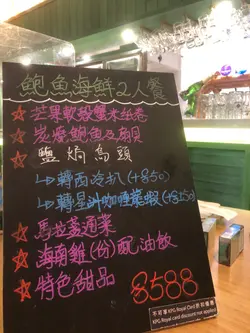 鮑魚海鮮2人餐
芒果軟殼蟹米紙卷
炭燒鮑魚及扇貝
鹽焗烏頭
↳轉西冷扒 (+$50)
↳轉星洲咖喱蟹(+$250)
馬拉盞通菜
海南雞(份)配油飯
特色甜品
$588
不可享 KPG Royal Card 折扣優惠
KPG Royal card discount not applied